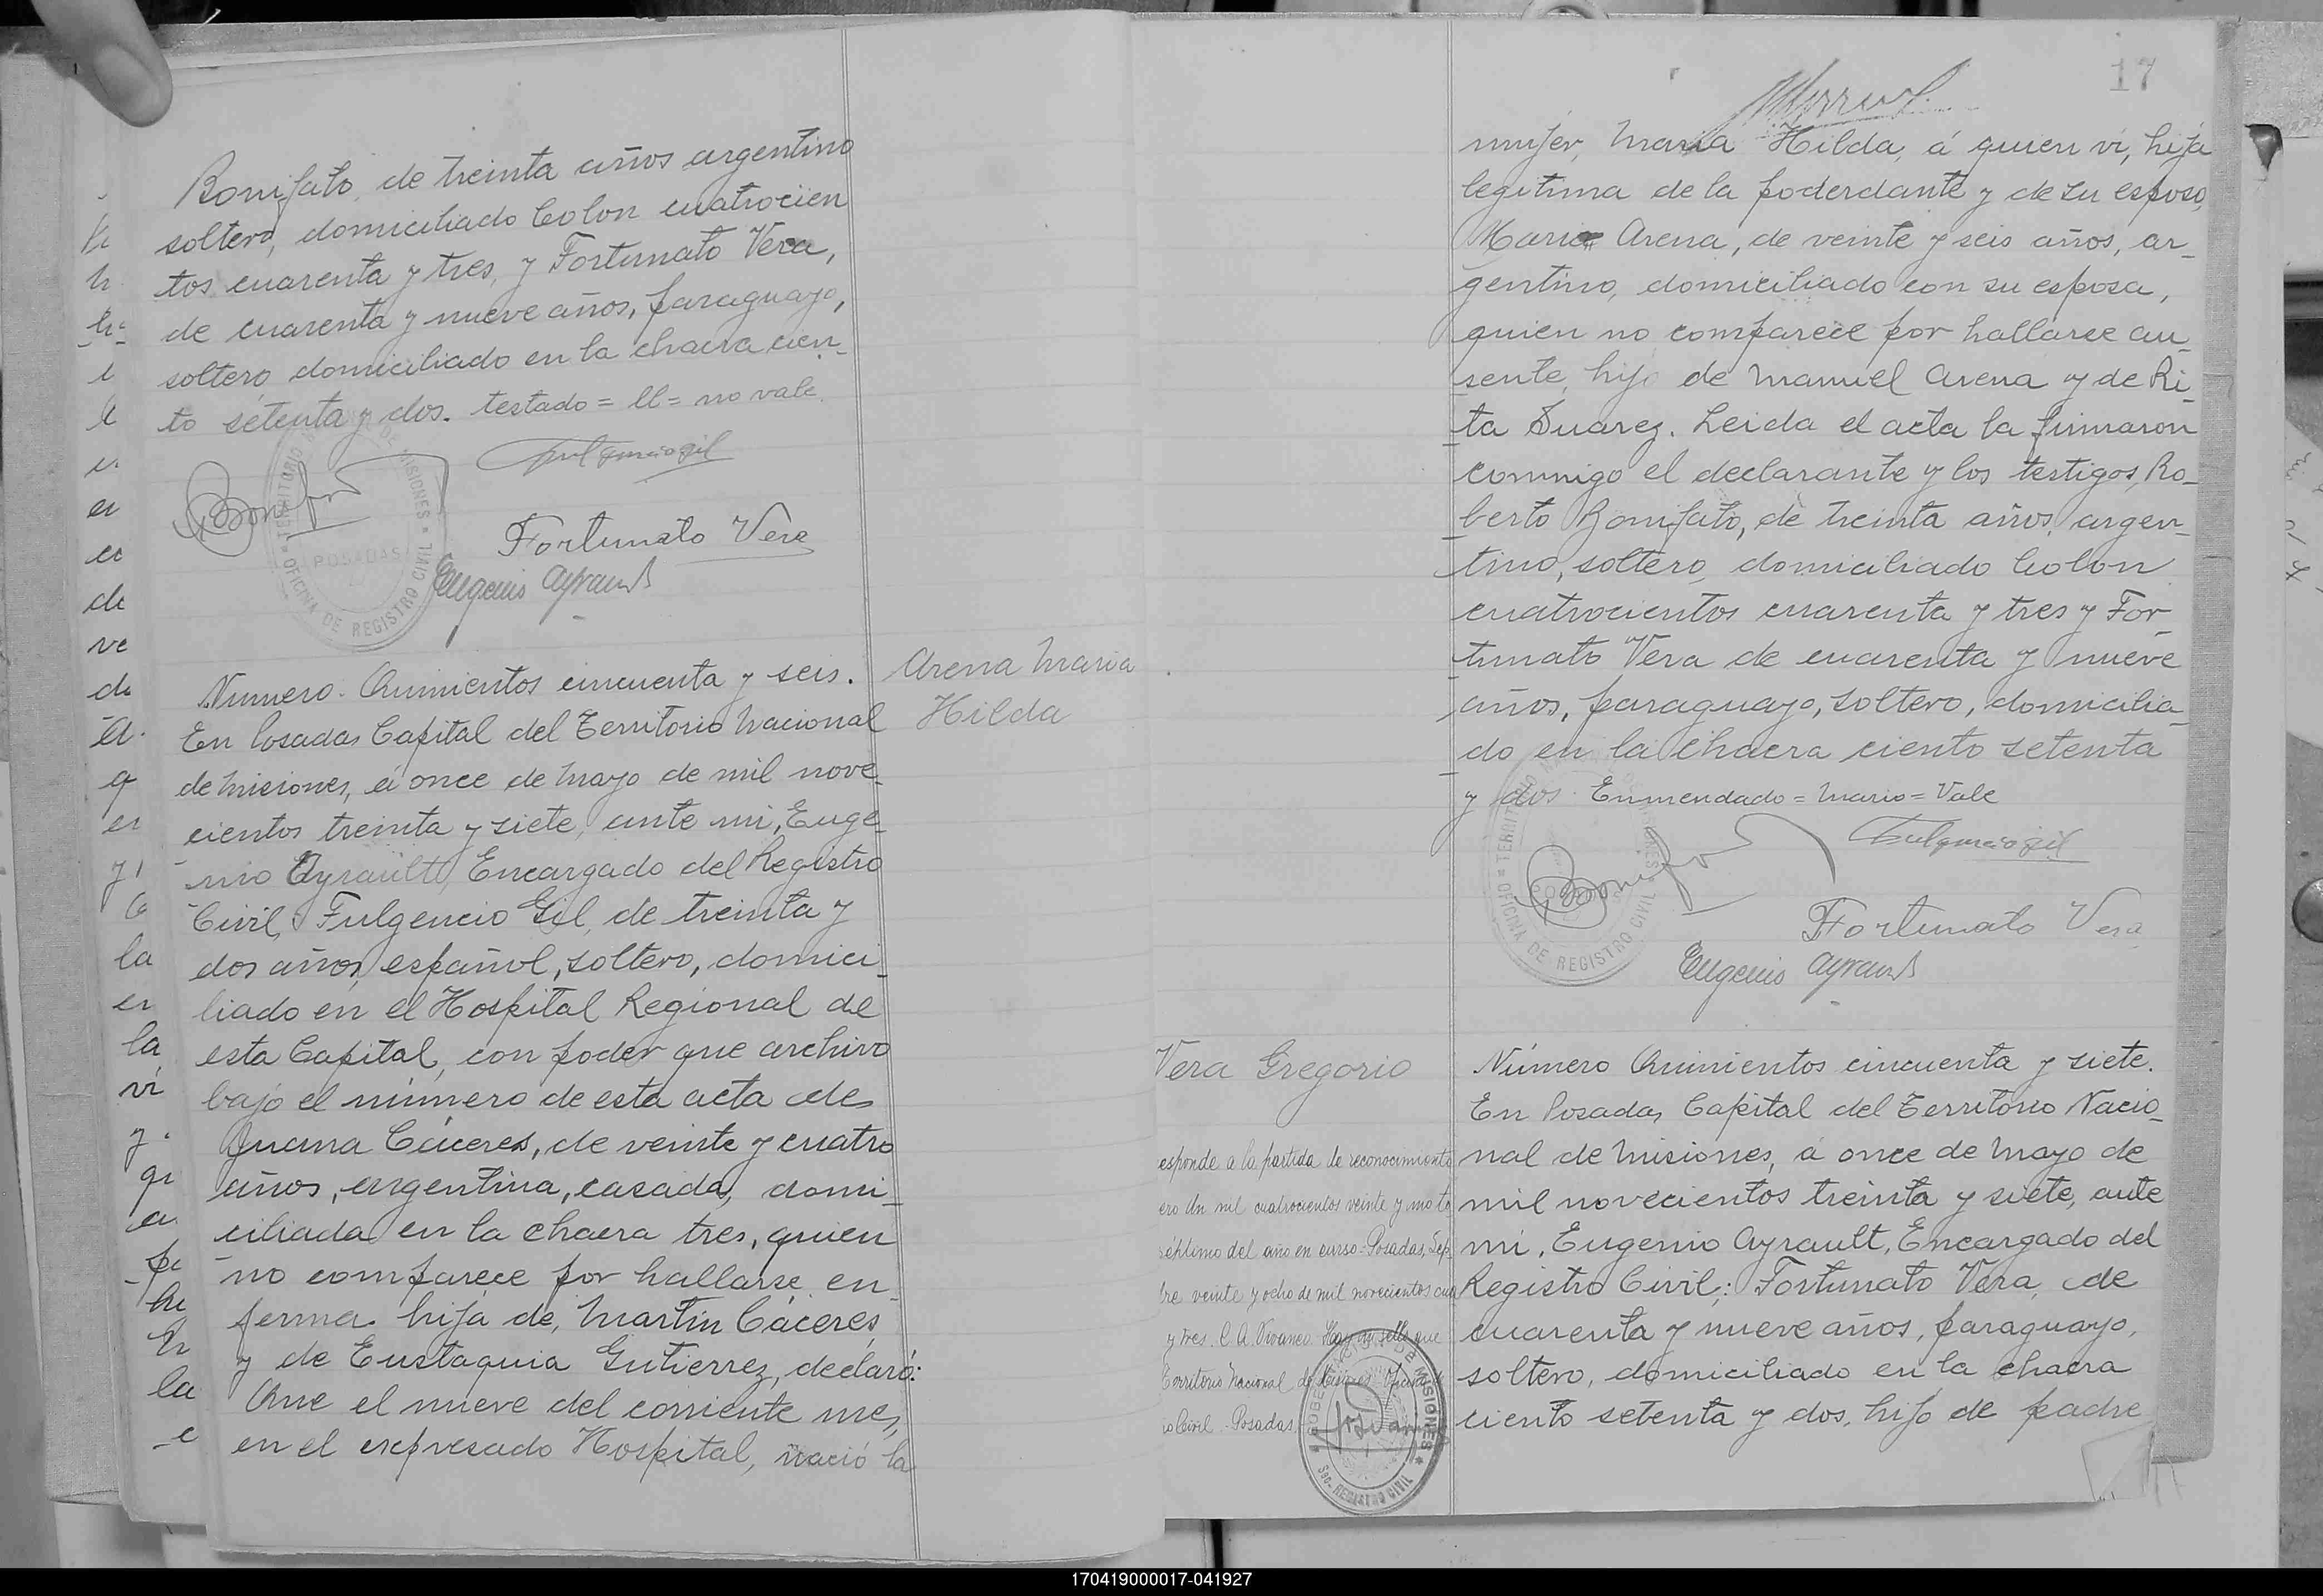 Bonifato, de treinta años argentino
soltero, domiciliado Colon cuatrocien
tos cuarenta y tres, y Fortunato Vera,
de cuarenta y nueve años, paraguayo,
soltero domiciliado en la chacra cien-
to setenta y dos. testado = ll = no vale.
Fulgencio Gil
Bonifato
Fortunato Vera
Eugenio Ayrault
TERRITORIO DE MISIONES
POSADAS
OFICINA DE REGISTRO CIVIL
Numero Quinientos cincuenta y seis.
En Posadas Capital del Territorio Nacional
de Misiones, á once de Mayo de mil nove-
cientos treinta y siete, ante mi, Euge-
nio Ayrault, Encargado del Registro
Civil, Fulgencio Gil, de treinta y
dos años, español, soltero, domici-
liado en el Hospital Regional de
esta Capital, con poder que archivo
bajo el número de esta acta de
Juana Cáceres, de veinte y cuatro
años, argentina, casada, domi-
ciliada en la chacra tres, quien
no comparece por hallarse en-
ferma hija de, Martin Cáceres
y de Eustaquia Gutierrez, declaró:
Que el nueve del corriente mes,
en el expresado Hospital, nació la
Arena Maria
Hilda
17
mujer, Maria Hilda, á quien vi, hija
legitima de la poderdante y de su esposo,
Mario Arena, de veinte y seis años, ar-
gentino, domiciliado con su esposa,
quien no comparece por hallarse au-
sente, hijo de Manuel Arena y de Ri-
ta Suarez. Leida el acta la firmaron
conmigo el declarante y los testigos, Ro-
berto Bonifato, de treinta años, argen-
tino, soltero, domiciliado Colon
cuatrocientos cuarenta y tres y For-
tunato Vera de cuarenta y nueve
años, paraguayo, soltero, domicilia-
do en la chacra ciento setenta
y dos. Enmendado = Mario = Vale
Fulgencio Gil
Bonifato
Fortunato Vera
Eugenio Ayrault
OFICINA DE REGISTRO CIVIL
Vera Gregorio
esponde a la partida de reconocimiento
ero Un mil cuatrocientos veinte y uno to
séptimo del año en curso. Posadas, Sep
bre veinte y ocho de mil novecientos cua
y tres. C. A. Vivanco. Hay un sello que
Territorio Nacional de Misiones Oficina
o Civil - Posadas
MISIONES
Sec. REGISTRO CIVIL
Número Quinientos cincuenta y siete.
En Posadas Capital del Territorio Nacio-
nal de Misiones, á once de Mayo de
mil novecientos treinta y siete, ante
mi, Eugenio Ayrault, Encargado del
Registro Civil; Fortunato Vera, de
cuarenta y nueve años, paraguayo,
soltero, domiciliado en la chacra
ciento setenta y dos, hijo de padre
170419000017-041927